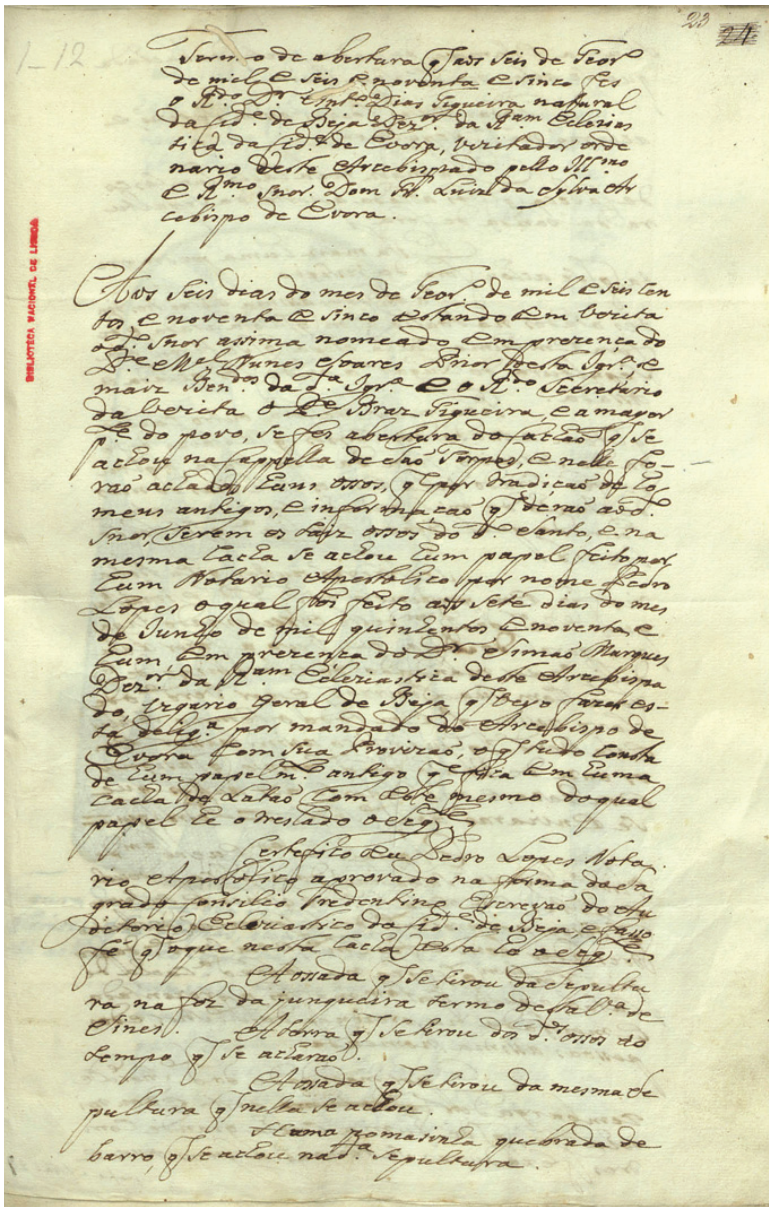 23
24
1-12
Termo de abertura q̃ aos seis de Feor.º
de mil e seis e noventa e sinco fes
o R.do D.r Ent.º Dias Figueira natural
da Cid.e de Beja Dez.or da R.am Eclezias
tica da Cid.e de Evora, vezitador orde
nario deste Arcebispado pello Ill.mo
e R.mo Snor. Dom Fr. Luiz da Sylva Ar
cebispo de Evora.
BIBLIOTECA NACIONAL DE LISBOA
Aos seis dias do mes de Feor.º de mil e seis cen
tos e noventa e sinco estando em vezita
o d.º Snor assima nomeado em prezença do
P.e M.el Nunes Soares Prior desta Igr.ª e
maiz Ben.dos da d.ª Igr.ª e o R.do Secretario
da vezita o P.e Braz Figueira, e a mayor
p.te do povo, se fes abertura do caxão q̃ se
achou na Cappella de São Torpes, e nelle fo-
rão achados huns ossos, q̃ por tradição de ho
mens antigos, e informação q̃ derão ao d.º
Snor, serem os taiz ossos do d.º Santo, e na
mesma caxa se achou hum papel feito por
hum Notario Apostolico por nome Pedro
Lopes o qual foi feito aos sete dias do mes
de Junho de mil quinhentos e noventa e
hum, em prezença do D.r Simão Marques
Dez.or da R.am Ecleziastica deste Arcebispa
do, vigario geral de Beja q̃ veyo fazer es-
ta delig.ª por mandado do Arcebispo de
Evora com sua Provizão, o q̃ tudo consta
de hum papel m.to antigo q̃ fica em huma
caxa de Latão com este mesmo do qual
papel he o treslado o seg.te
Certefico eu Pedro Lopes Nota
rio Apostolico aprovado na forma do Sa
grado Consilio Tredentino Escrevão do Au
ditorio Ecleziastico da Cid.e de Beja e faço
fé q̃ o que nesta caxa esta he o seg.te
A ossada q̃ se tirou da sepultu
ra na foz da junqueira termo desta V.ª de
Sines. A terra q̃ se tirou dos d.os ossos ao
tempo q̃ se acharão.
A ossada q̃ se tirou da mesma se
pultura q̃ nella se achou.
Huma pomasinha quebrada de
barro, q̃ se achou na d.ª sepultura.